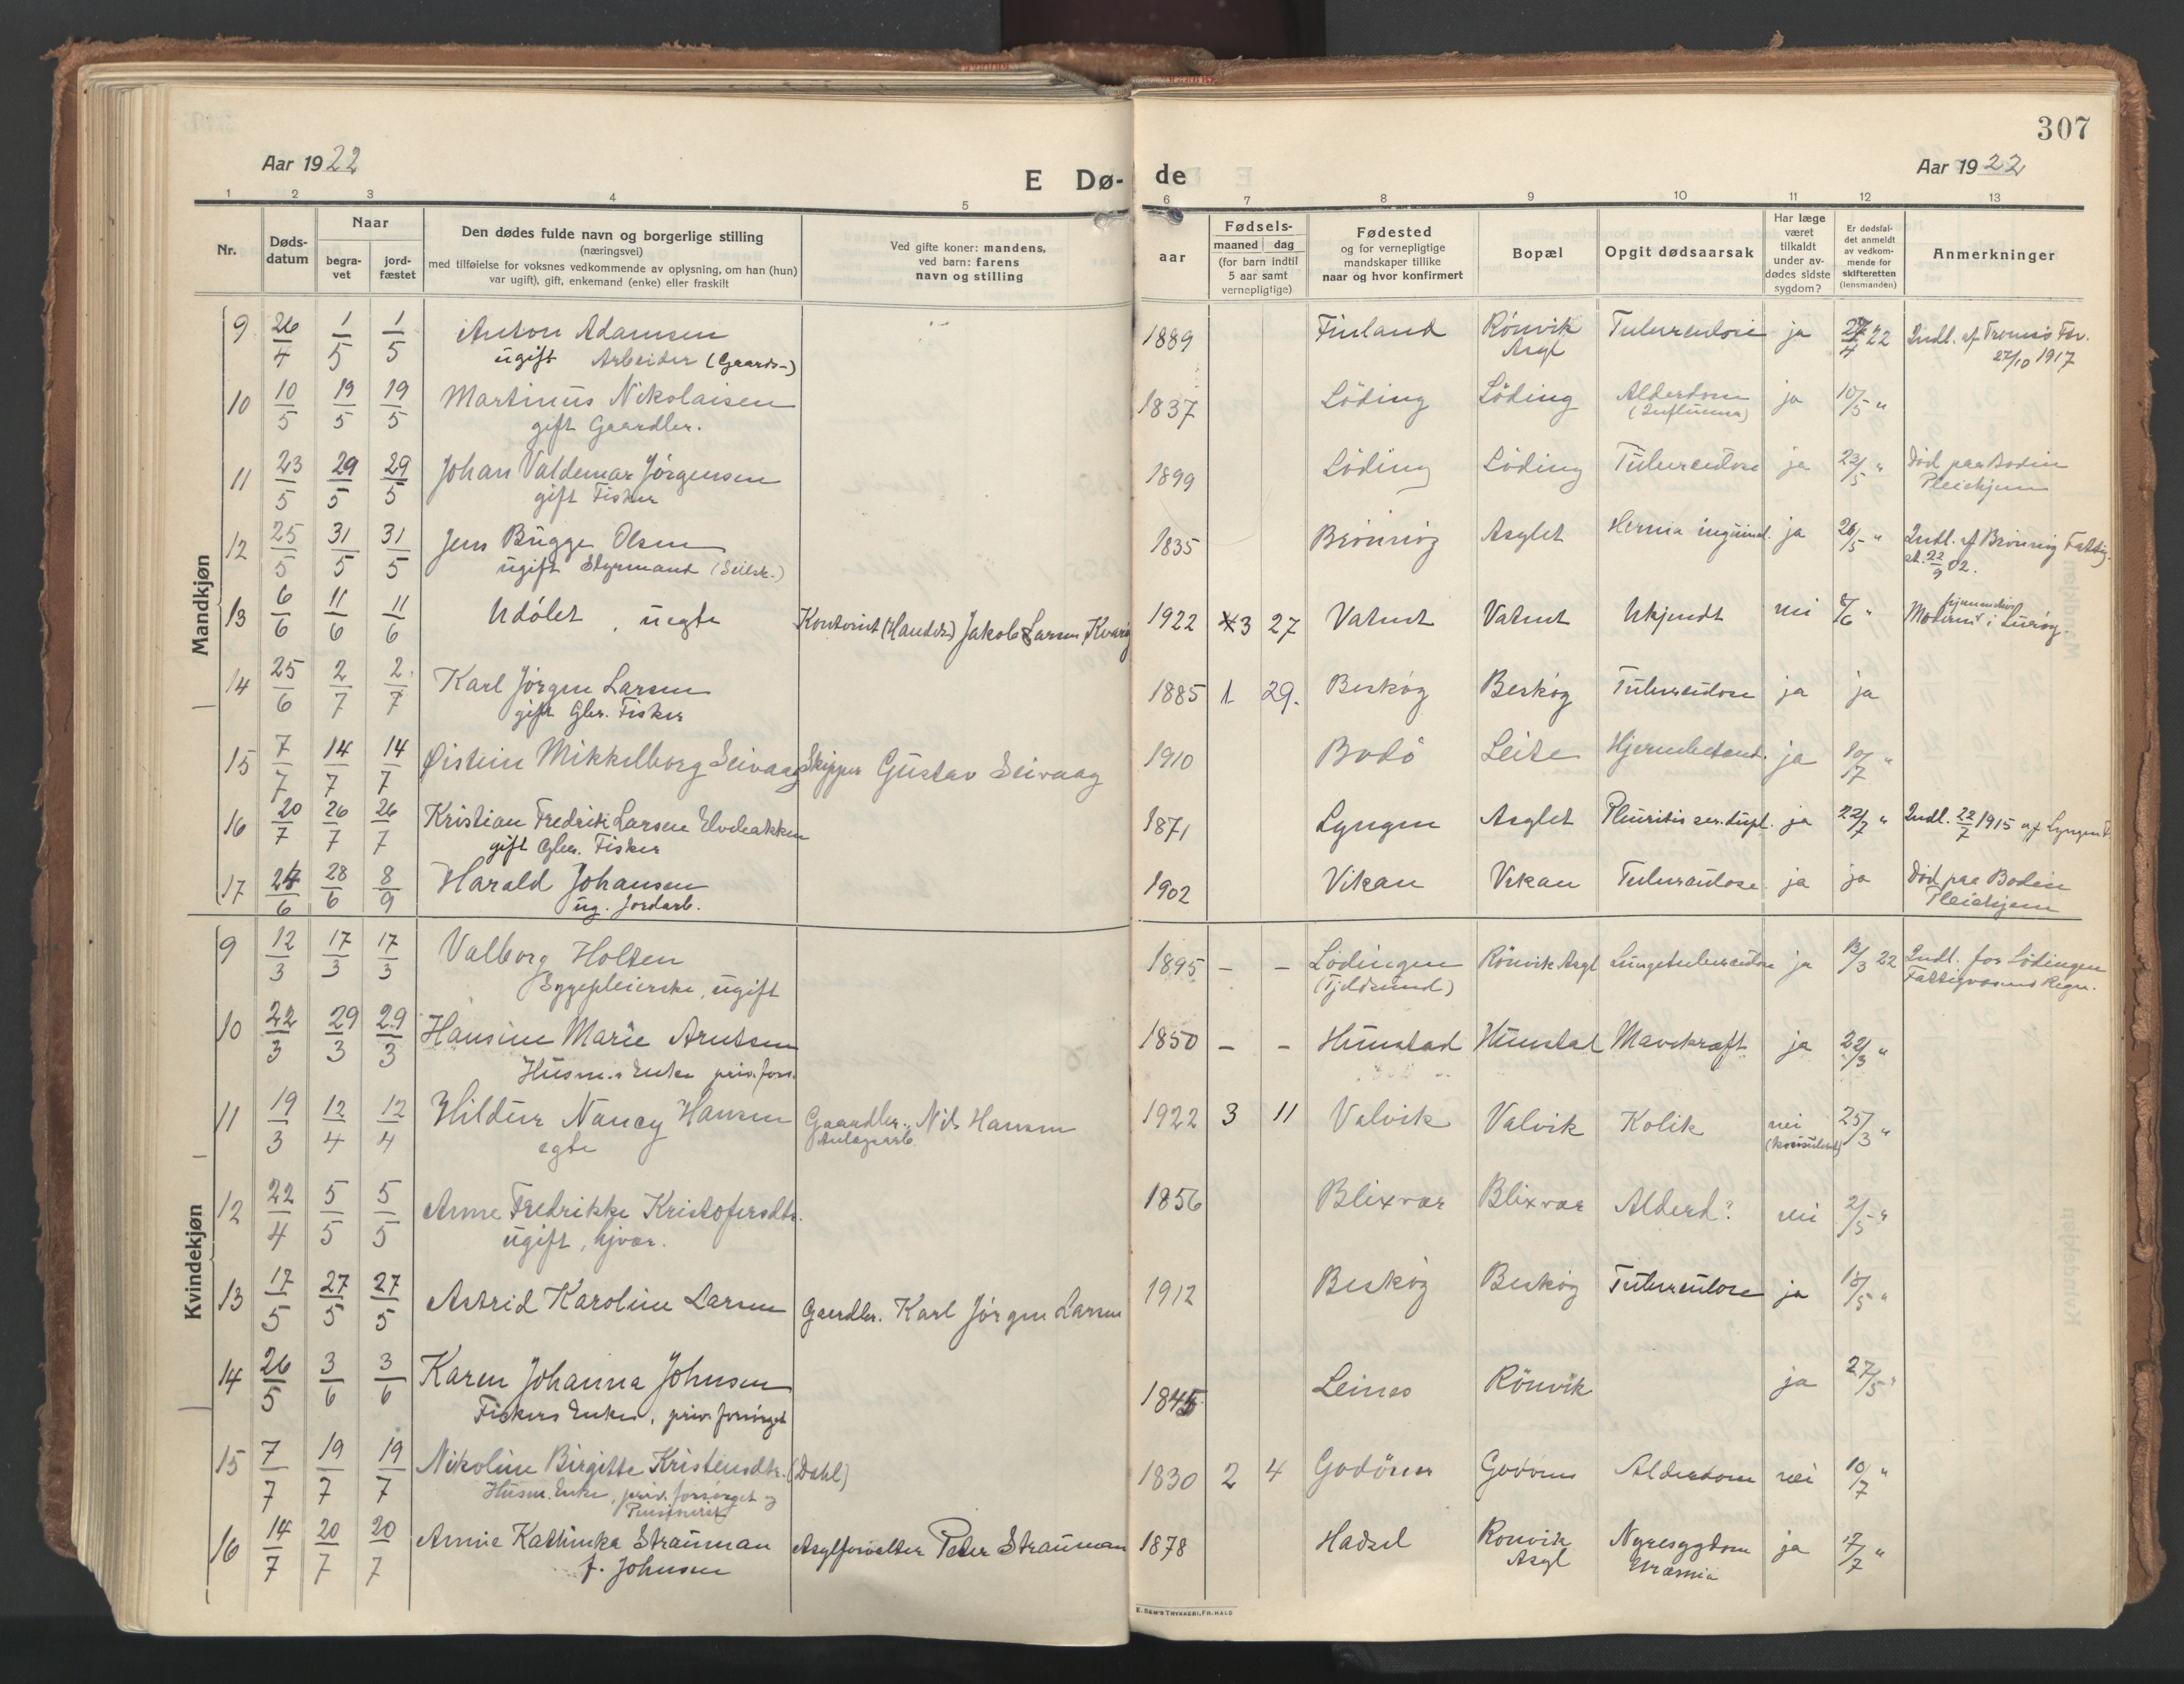 307
Aar 1922
E Dø-
de
Aar 1922
1 2 3 4 5 6 7 8 9 10 11 12 13
Nr.
Døds-
datum
Naar
begra-
vet
jord-
fæstet
Den dødes fulde navn og borgerlige stilling
(næringsvei)
med tilføielse for voksnes vedkommende av oplysning, om han (hun)
var ugift, gift, enkemand (enke) eller fraskilt
Ved gifte koner: mandens,
ved barn: farens
navn og stilling
Fødsels-
aar
maaned dag
(for barn indtil
5 aar samt
vernepligtige)
Fødested
og for vernepligtige
mandskaper tillike
naar og hvor konfirmert
Bopæl
Opgit dødsaarsak
Har læge
været
tilkaldt
under av-
dødes sidste
sygdom?
Er dødsfal-
det anmeldt
av vedkom-
mende for
skifteretten
(lensmanden)
Anmerkninger
Mandkjøn
9 26/4 1/5 1/5 Anton Adamsen 1889 Finland Rönvik Tuberculose ja 27/4 22 Indl. af Tromsø For.
ugift Arbeider (Gaards-) Asyl 27/10 1917
10 10/5 19/5 19/5 Martinus Nikolaisen 1837 Löding Löding Alderdom ja 10/5 "
gift Gaardbr. (Influensa)
11 23/5 29/5 29/5 Johan Valdemar Jörgensen 1899 Löding Löding Tuberculose ja 23/5 " Död paa Bodin
gift Fisker Pleiehjem
12 25/5 31/5 31/5 Jens Bugge Olsen 1835 Brönnöy Asylet Hernia inguinal. ja 26/5 " Indl. af Brönnöy Fattig.
ugift Styrmand (Seilsk.) 22/9 02.
13 6/6 11/6 11/6 Udöbt, uegte Kontorist (Handels) Jakob Larsen, Kvarøy 1922 3 27 Vatnet Vatnet Ukjendt nei /6 " Moderen i Luröy.
14 25/6 2/7 2/7 Karl Jörgen Larsen 1885 1 29. Beskög Beskög Tuberculose ja ja
gift Gbr. Fisker
15 7/7 14/7 14/7 Øistein Mikkelborg Seivaag Skipper Gustav Seivaag 1910 Bodö Leite Hjernebetend. ja 10/7 "
16 20/7 26/7 26/7 Kristian Fredrik Larsen Elvebakken 1871 Lyngen Asylet Pleuritis ser. dupl. ja 22/7 " Indl. 22/7 1915 af Lyngen F.
gift Gbr. Fisker
17 24/6 28/6 8/9 Harald Johansen 1902 Vikan Vikan Tuberculose ja ja Död paa Bodin
ug. Jordarb. Pleiehjem
Kvindekjøn
9 12/3 17/3 17/3 Valborg Holten 1895 - - Lödingen Rönvik Asyl Lungetuberculose ja 13/3 22 Indl. for Lödingen
Sygepleierske, ugift (Tjeldsund) Fattigvæsens Regn.
10 22/3 29/3 29/3 Hansine Marie Arntsen 1850 - - Hunstad Hunstad Mavekræft ja 22/3 "
Husm.s Enke priv. fors.
11 19/3 12/4 12/4 Hildur Nancy Hansen Gaardbr. Nils Hansen 1922 3 11 Valvik Valvik Kolik nei 25/3 "
egte Anlægsarb. (konsulent)
12 22/4 5/5 5/5 Anne Fredrikke Kristofersdtr. 1856 Blixvær Blixvær Alderd? nei 2/5 "
ugift, hjvær.
13 17/5 27/5 27/5 Astrid Karoline Larsen Gaardbr. Karl Jörgen Larsen 1912 Beskög Beskög Tuberculose ja 18/5 "
14 26/5 3/6 3/6 Karen Johanna Johnsen 1845 Leines Rönvik ja 27/5 "
Fiskers Enke, priv. forsörget
15 7/7 19/7 19/7 Nikoline Birgitte Kristensdtr. (Dahl) 1830 2 4 Godönes Godönes Alderdom nei 10/7 "
Husm. Enke, priv. forsörget og
Pensionist
16 14/7 20/7 20/7 Annie Kathinka Strauman Asylforvalter Peter Strauman 1878 Hadsel Rönvik Nyresygdom ja 17/7 "
f. Johnsen Asyl Uræmia
E. SEM'S TRYKKERI, FR.HALD